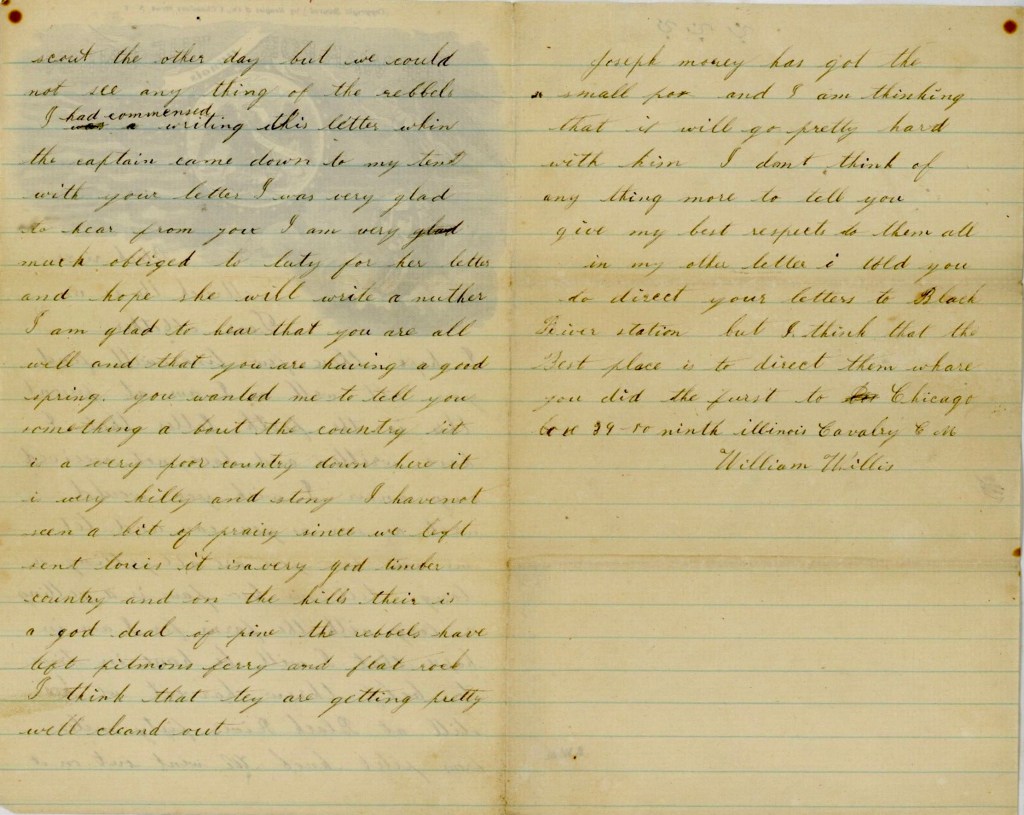 scout the other day but we could
not see any thing of the rebbels
had commensed
I was a writing this letter whin
the captain came down to my tent
with your letter I was very glad
to hear from you I am very glad
much obliged to laty for her letter
and hope she will write a nuther
I am glad to hear that you are all
well and that you are having a good
spring. you wanted me to tell you
something a bout the country it
i a very poor country down here it
is very hilly and stony I have not
seen a bit of prairy since we left
sent louis it is a very god timber
country and on the hills their is
a god deal of pine the rebbels have
left pitmons ferry and flat rock
I think that tey are getting pretty
well cleand out
Joseph morey has got the
small pox and I am thinking
that it will go pretty hard
with him I dont think of
any thing more to tell you
give my best respects to them all
in my other letter i told you
to direct your letters to Black
River station but I think that the
Best place is to direct them whare
you did the furst to Chicago
box 39-50 ninth illinois Cavalry C M
William Willis